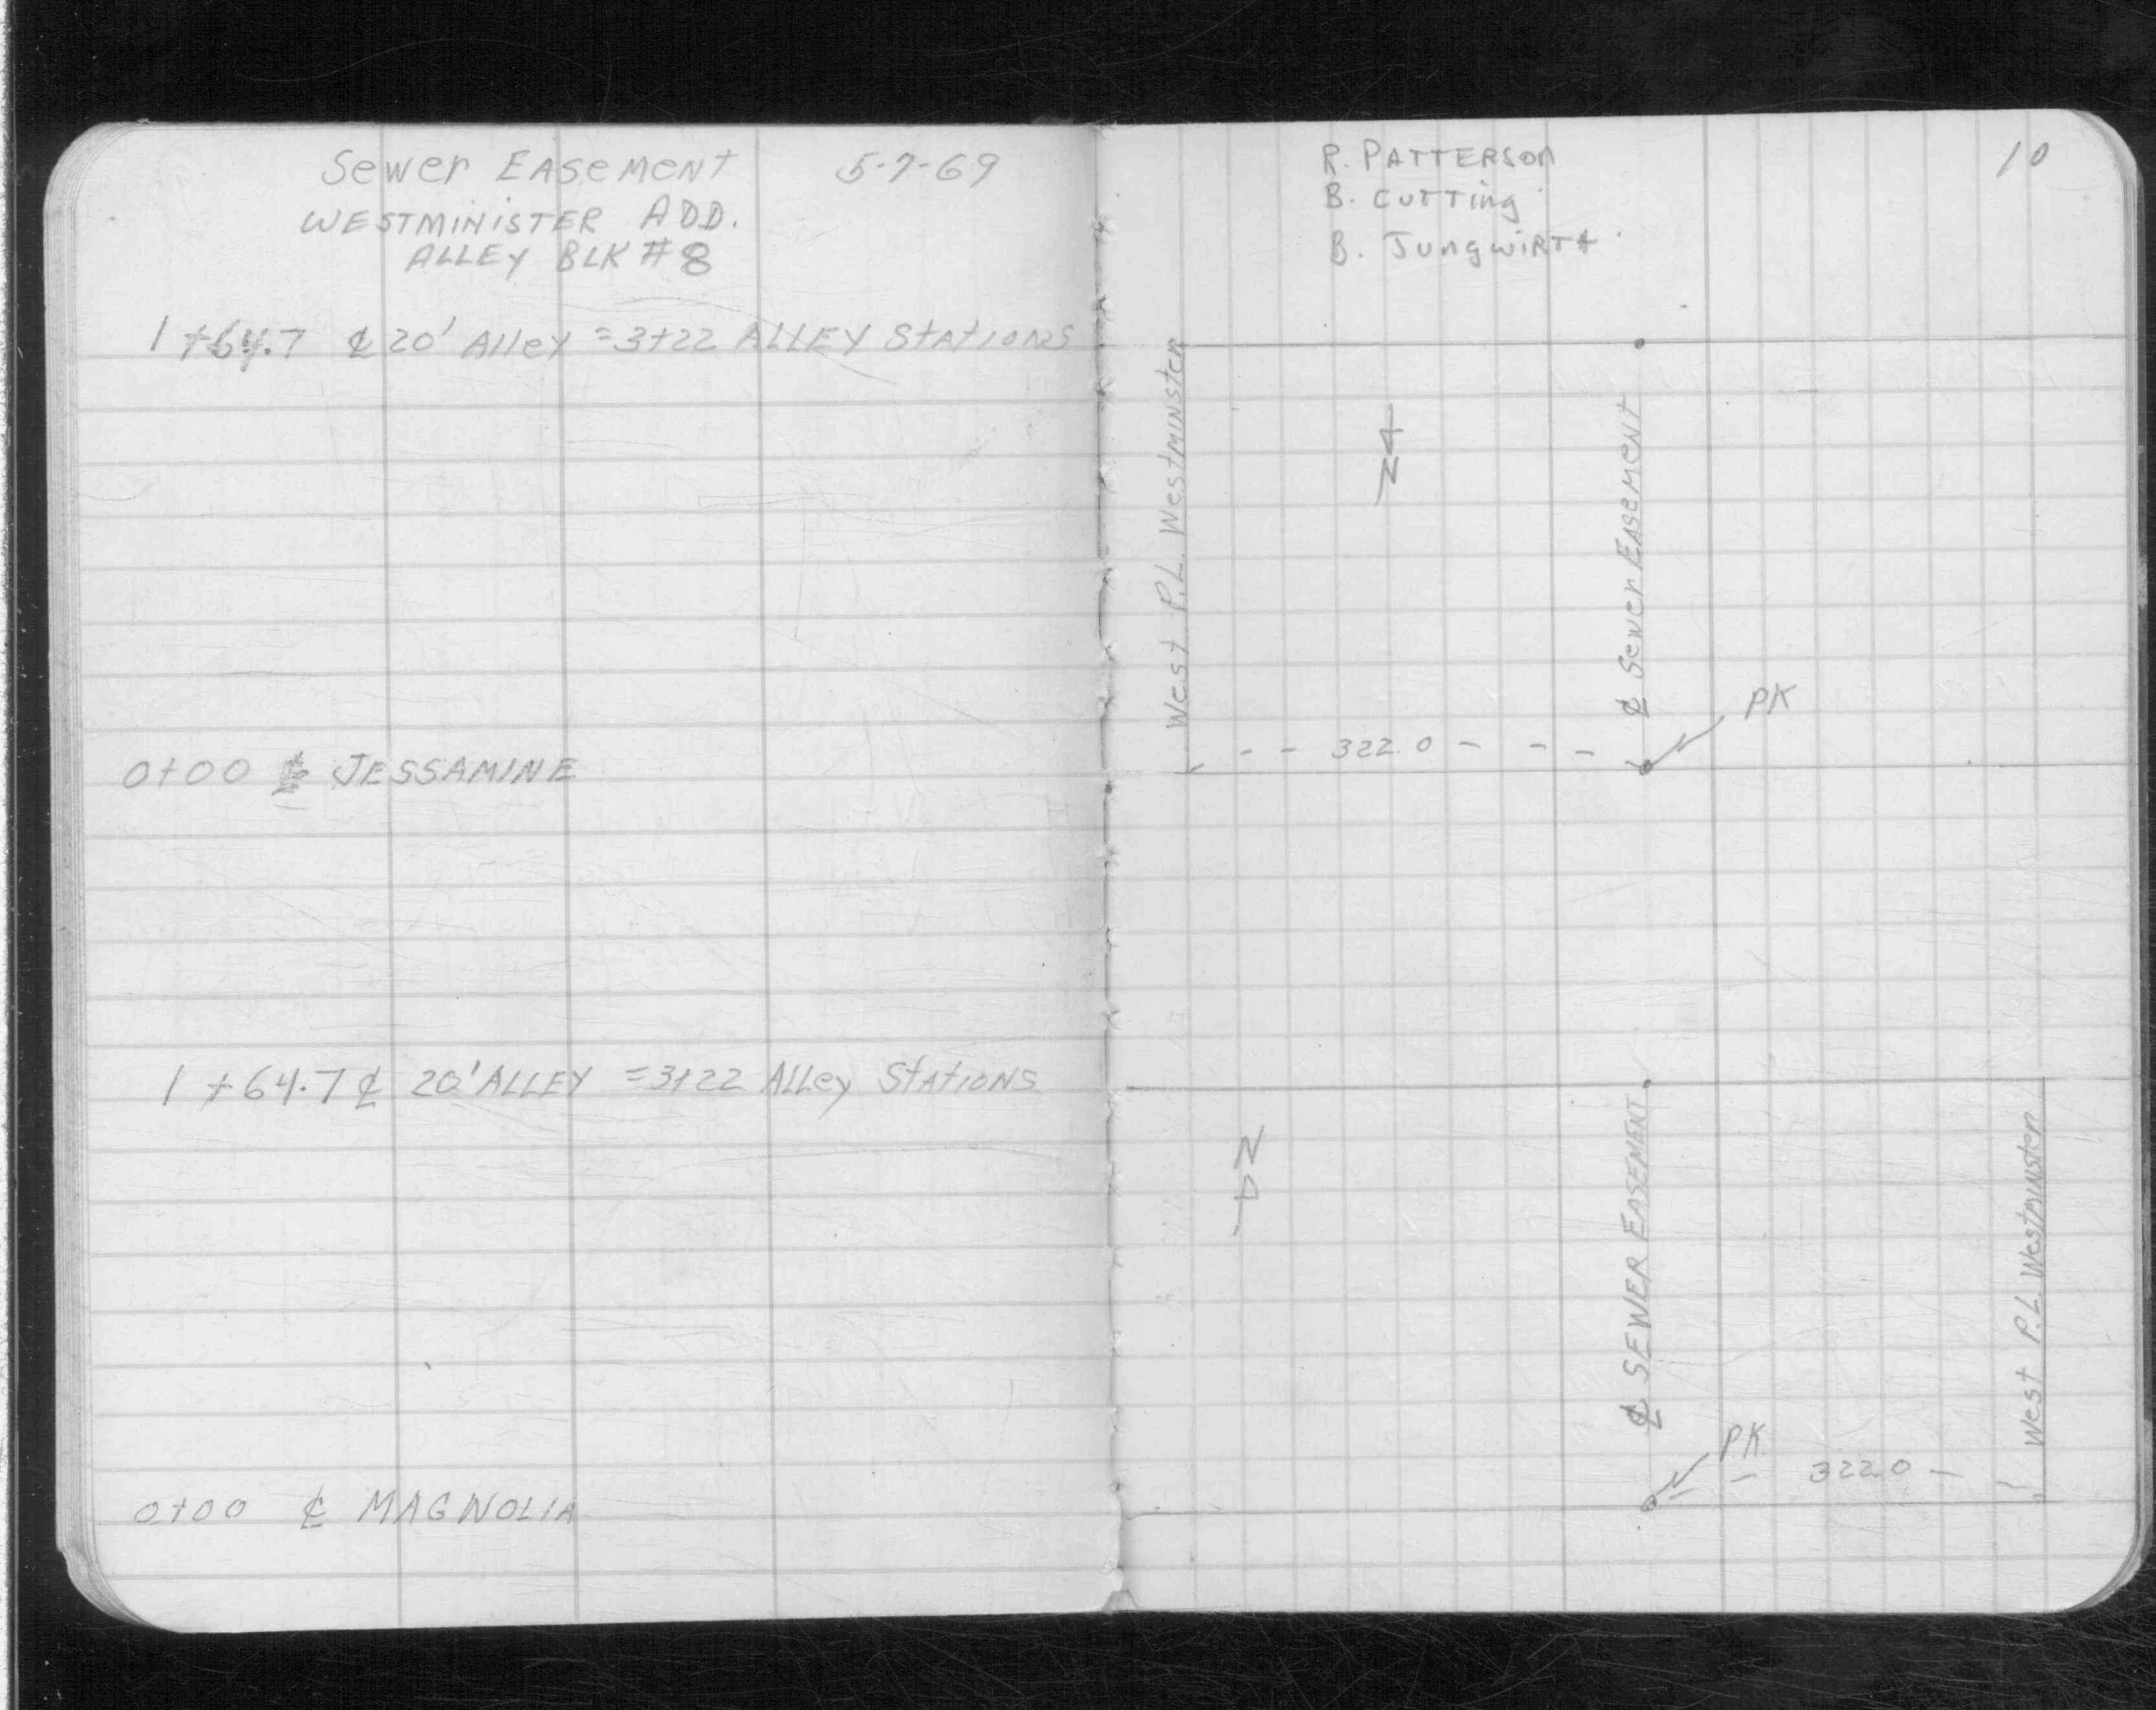 Sewer EASEMENT 5-7-69
WESTMINISTER ADD.
ALLEY BLK #8
1+64.7 ℄ 20' Alley =3+22 ALLEY STATIONS
0+00 ℄ JESSAMINE
1+64.7 ℄ 20' ALLEY =3+22 Alley STATIONS
0+00 ℄ MAGNOLIA
R. PATTERSON
B. CUTTing
B. JungwiRTH
10
West P.L. Westminster
N
℄ Sewer EASEMENT
PK
322.0
N
℄ SEWER EASEMENT
West P.L. Westminster
PK
322.0